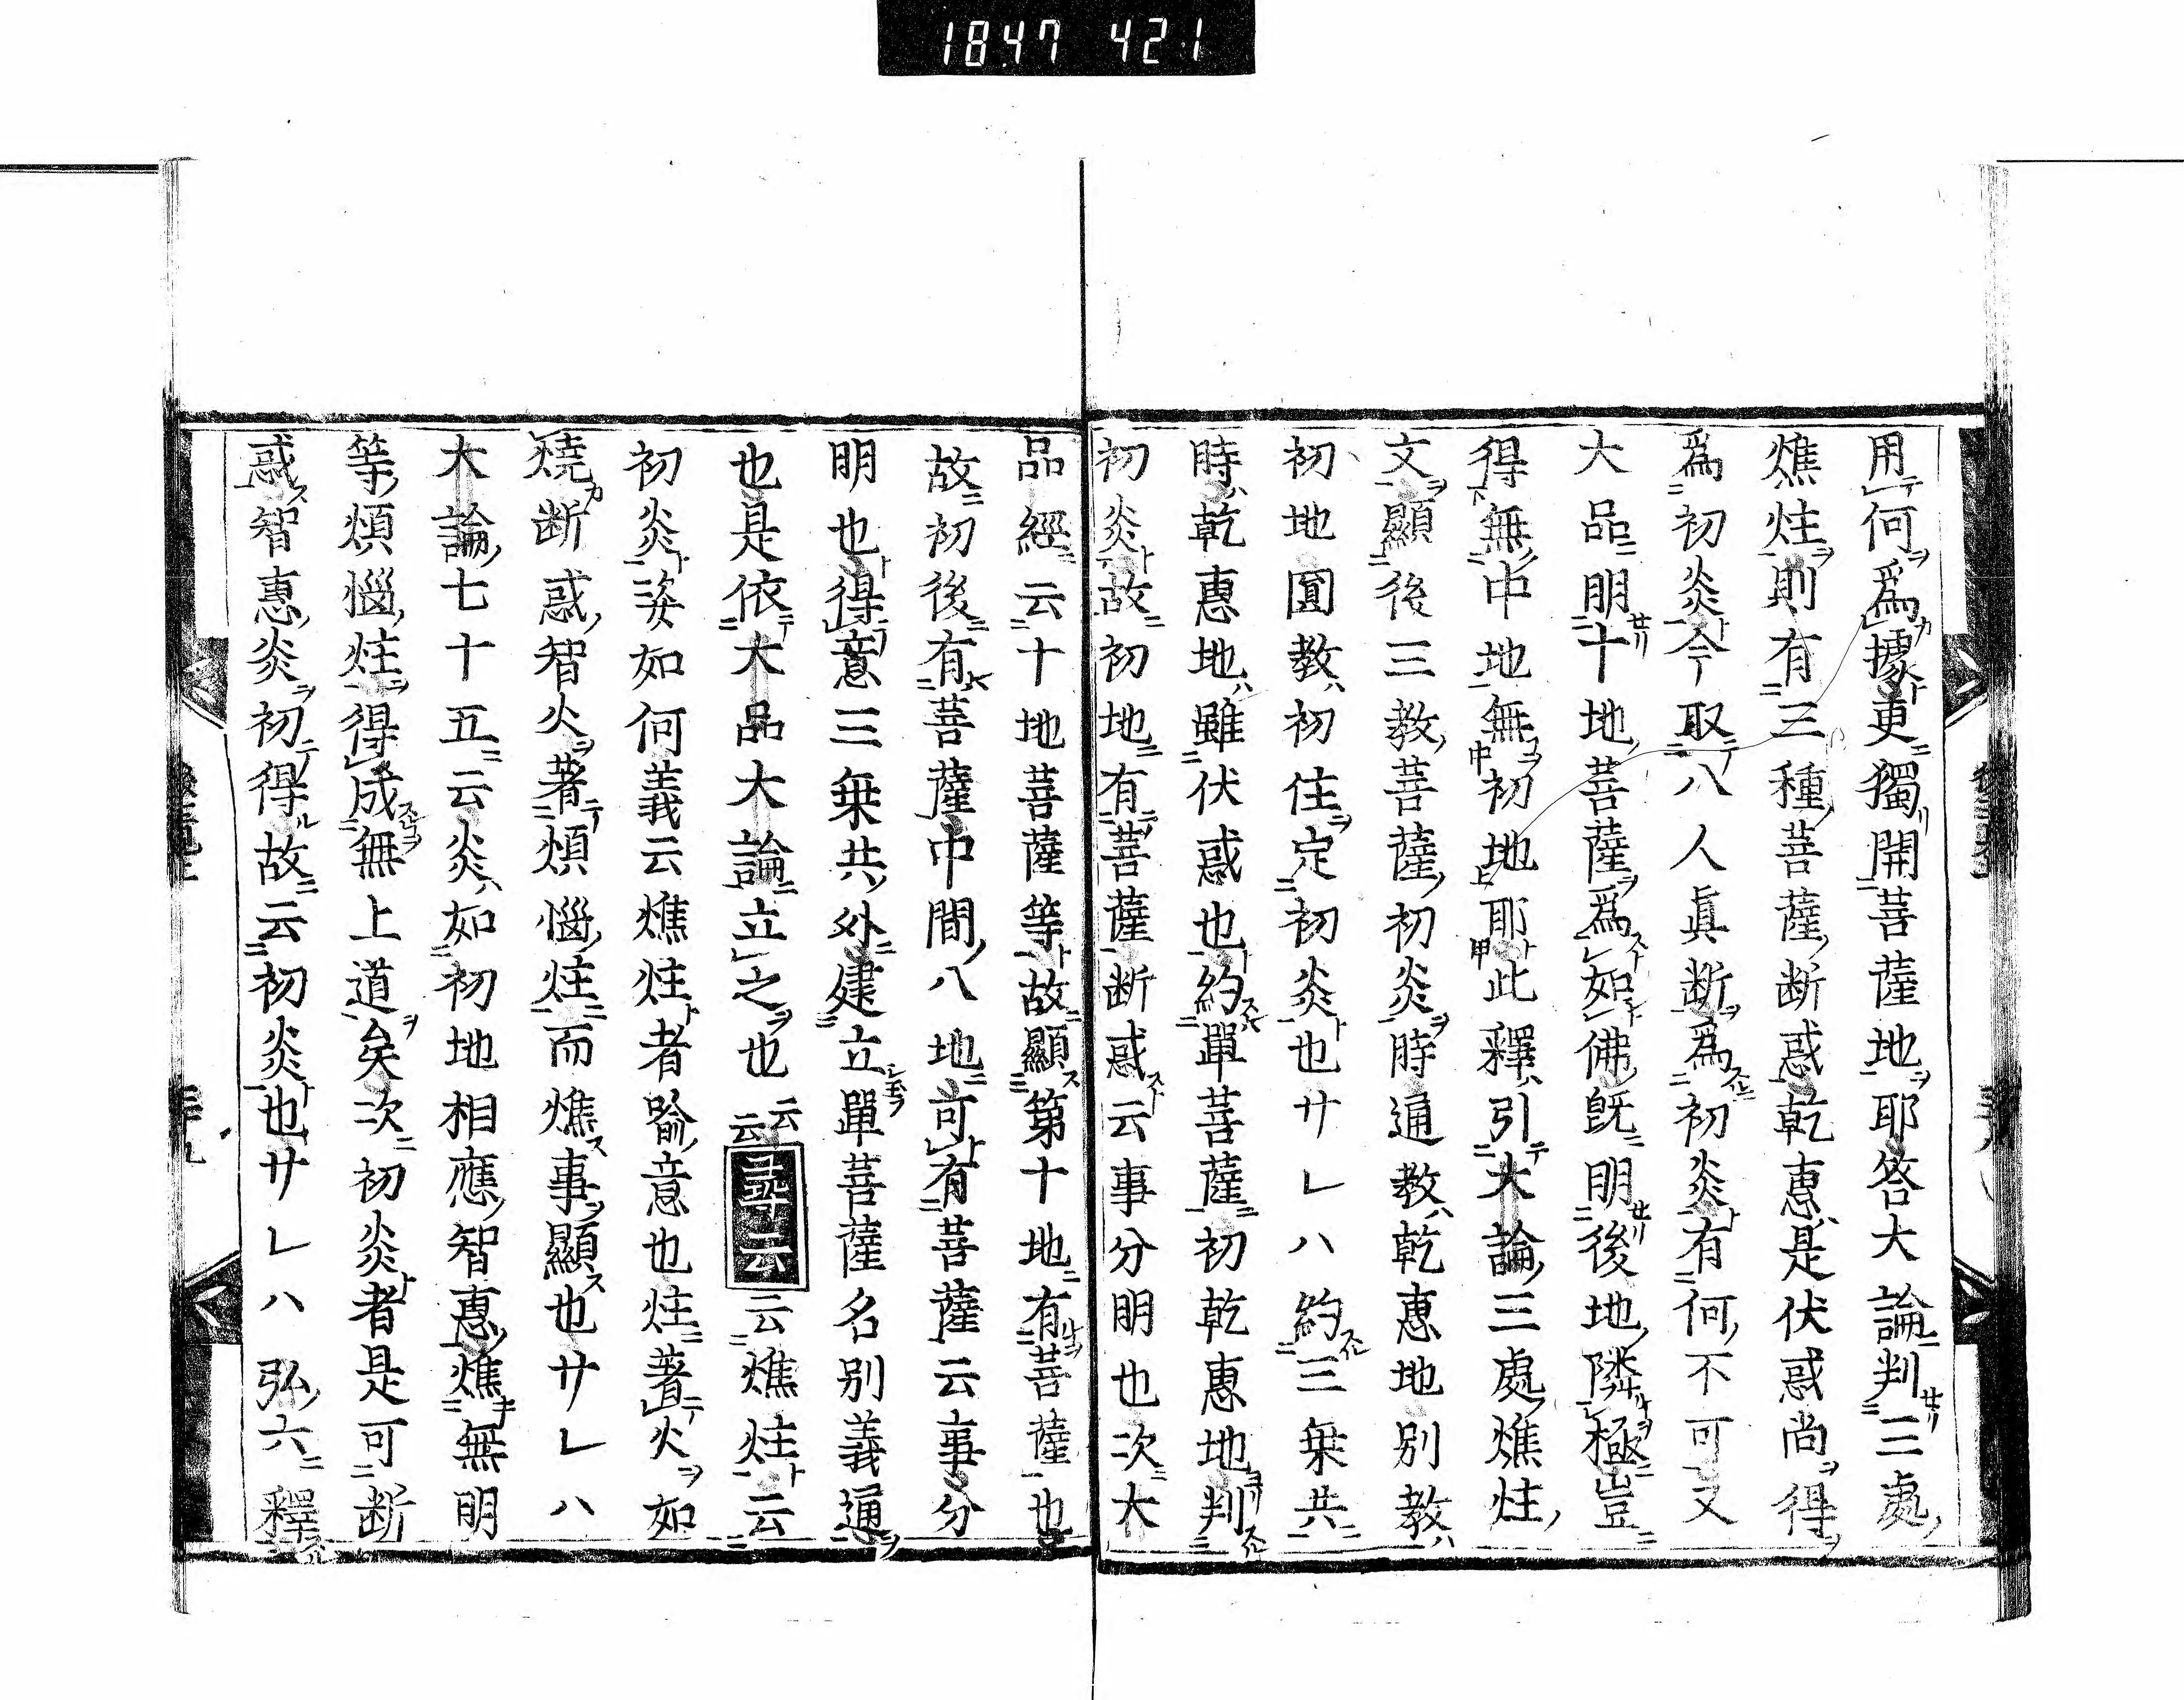 1847 421
用何爲據更獨開菩薩地耶答大論判三處
燋炷則有三種菩薩断惑乾惠是伏惑尚得
爲初炎今取八人眞断爲初炎有何不可又
大品明十地菩薩爲如佛既明後地隣極豈
得無中地無初地耶此釋引大論三處燋炷
文顯後三教菩薩初炎時通教乾惠地別教
初地圓教初住定初炎也サレハ約三乗共
時乾惠地雖伏惑也約單菩薩初乾惠地判
初炎故初地有菩薩断惑云事分明也次大
品經云十地菩薩等故顯第十地有菩薩也
故初後有菩薩中間八地可有菩薩云事分
明也得意三乗共外建立單菩薩名別義通
也是依大品大論立之也云云尋云云燋炷云
初炎姿如何義云燋炷者喩意也炷著火如
燒断惑智火著煩惱炷而燋事顯也サレハ
大論七十五云炎如初地相應智惠燋無明
等煩惱炷得成無上道矣次初炎者是可断
惑智惠炎初得故云初炎也サレハ弘六釋